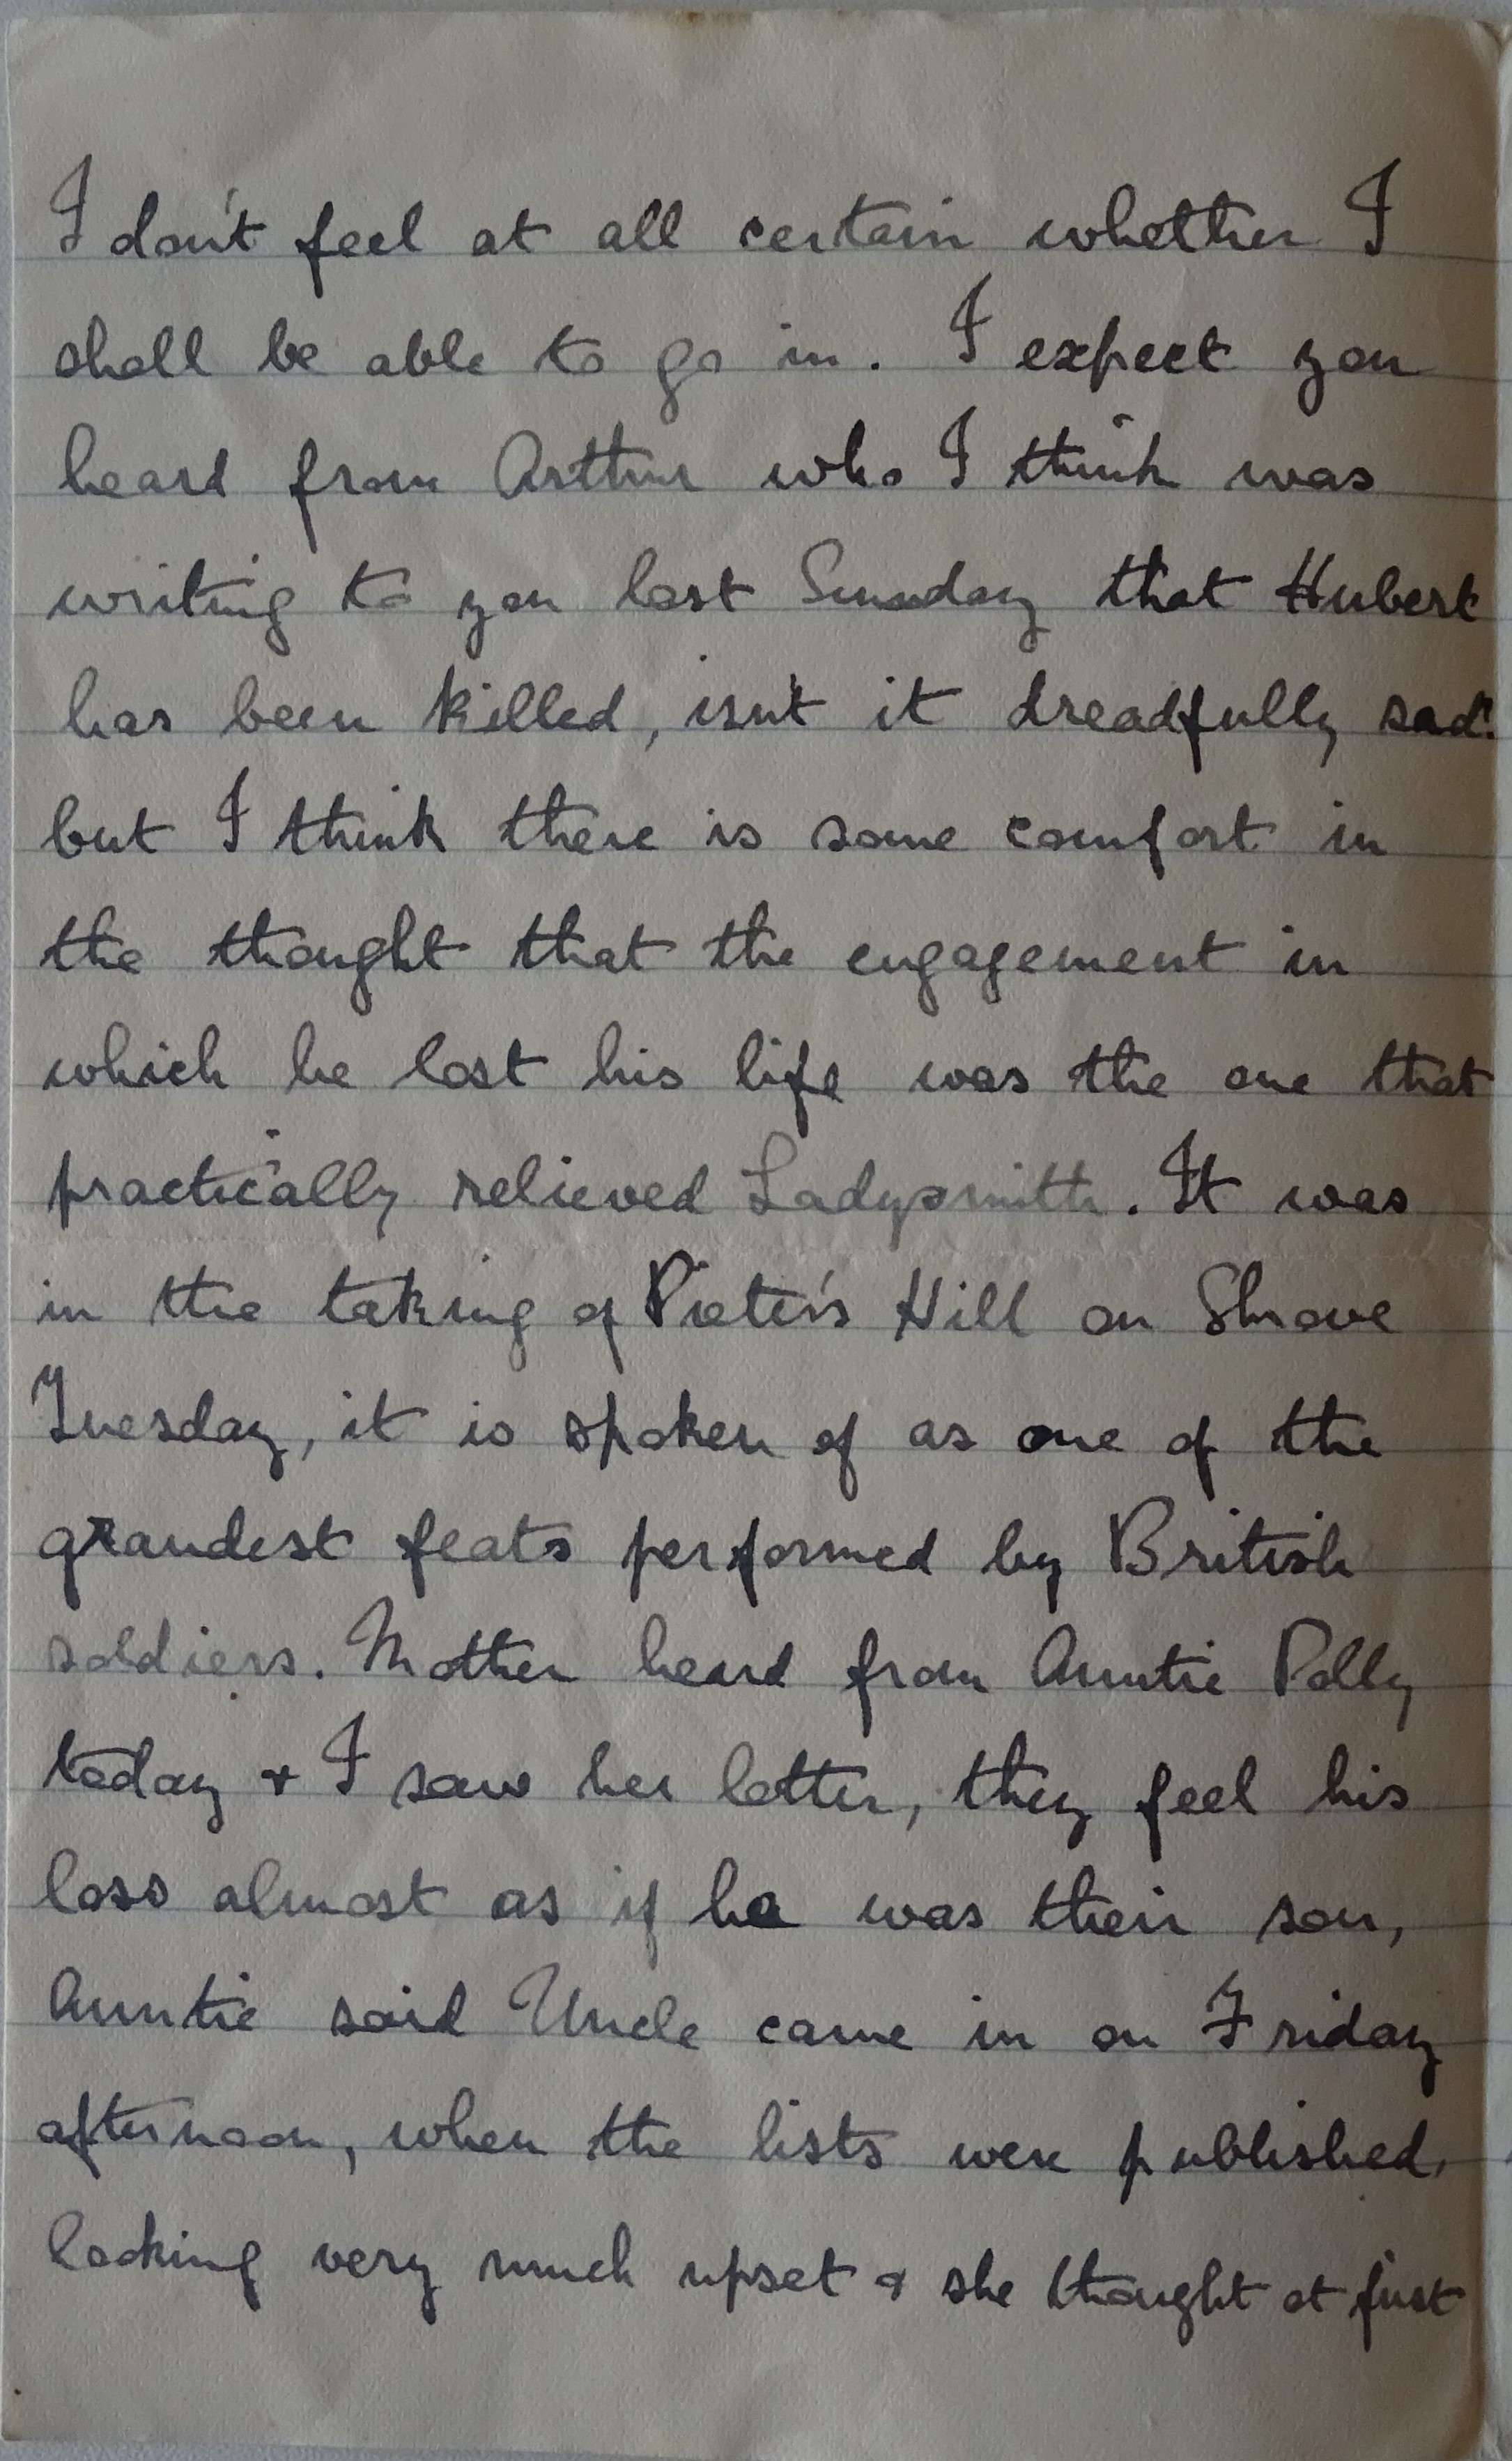 I don't feel at all certain whether I
shall be able to go in. I expect you
heard from Arthur who I think was
writing to you last Sunday that Hubert
has been killed, isn't it dreadfully sad.
but I think there is some comfort in
the thought that the engagement in
which he lost his life was the one that
practically relieved Ladysmith. It was
in the taking of Pieter's Hill on Shrove
Tuesday, it is spoken of as one of the
grandest feats performed by British
soldiers. Mother heard from Auntie Polly
today & I saw her letter, they feel his
loss almost as if he was their son,
Auntie said Uncle came in on Friday
afternoon, when the lists were published,
looking very much upset & she thought at first